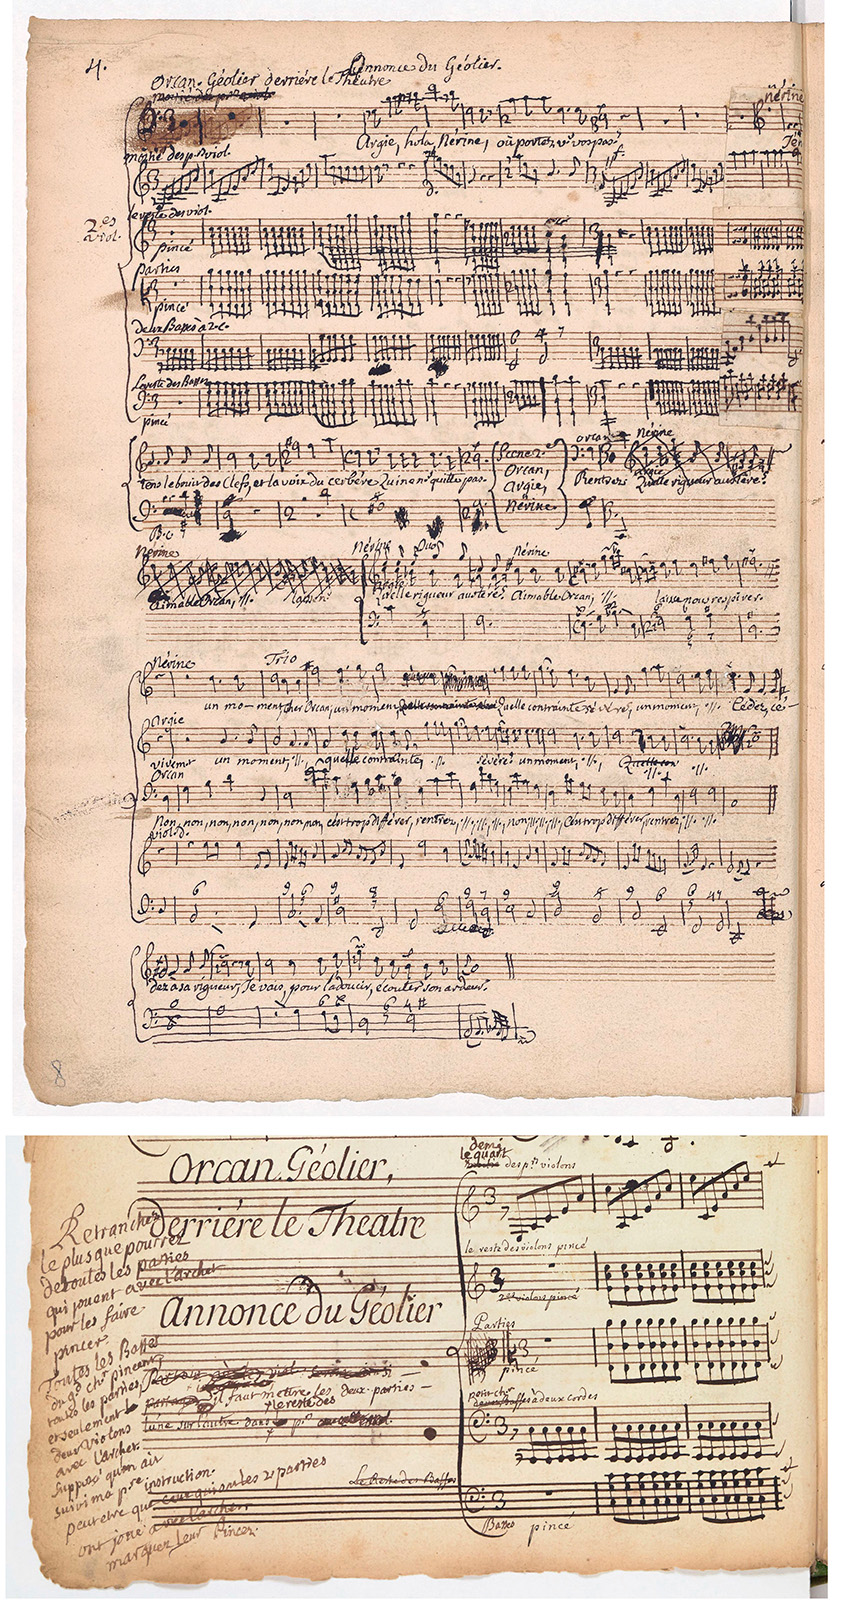 4.
Annonce du Géolier.
Orcan, Géolier derriére le Théatre
nérine
Argie, hola Nérine, où portez vs vos pas?
moitié des prs viol.
le reste des viol.
2.es viol.
pincé
Parties
pincé
deux Basses à 2 c.
Le reste des Basses
pincé
orcan nérine
Scene 2.
Orcan,
Argie,
Nérine
tens le bruit des Clefs, et la voix du cerbére Qui ne ns quitte pas.
Rentrers
Argie
Quelle rigueur austére?
B.c
Nérine
Nérine Duo Nérine
Aimable Orcan, //.
Argie
Quelle rigueur austére? Aimable Orcan, //. laisse nous respirer.
Nérine Trio
un mo- ment, cher Orcan, un moment Quelle contrainte sévére, un moment, //. Cédez, cé-
Argie
un moment, //. quelle contrainte, //. sévére? un moment, //,
Orcan
Non, non, non, non, non, non, non, c'es trop différer, rentrez, //. //. //. non, //. //. //. C'es trop différer, rentrez, //. //.
violo.
dez à sa rigueur, Je vais, pour l'adoucir, écouter son ardeur.
8
Orcan, Géolier,
derriére le Theatre
Annonce du Géolier
demi
le quart
des prs violons
le reste des violons pincé
2es violons pincé
Parties
pincé
petit chr
deux Basses à deux cordes
Le Reste des Basses
Basses pincé
Retranchez
le plus que pourrez
de toutes les parties
qui jouent avec l'archet
pour les faire
pincer.
Toutes les Basses
du gd chr pincent
toutes les parties
et seulement
deux violons
avec l'archet.
supposé qu'on ait
suivi ma pre instruction.
peut etre que ceux qui son les 2 parties
ont joué avec l'archet.
marquez leur Pincez.
s'il faut mettre les deux parties
le reste des
l'une sur l'autre dans